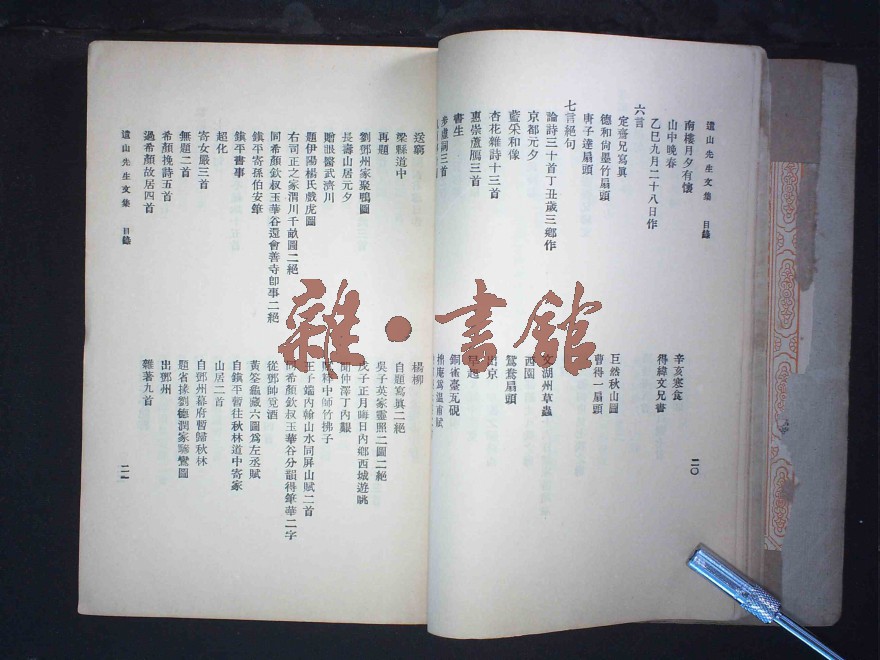 遺山先生文集 目錄
二〇
南樓月夕有懷
山中晚春
乙巳九月二十八日作
六言
定齋兄寫真
德和尚墨竹扇頭
唐子達扇頭
七言絕句
論詩三十首丁丑歲三鄉作
京都元夕
藍采和像
杏花雜詩十三首
惠崇蘆鴈三首
書生
步虛詞三首
辛亥寒食
得緯文兄書
巨然秋山圖
曹得一扇頭
文湖州草蟲
西園
鴛鴦扇頭
出京
早起
銅雀臺瓦硯
送窮
梁縣道中
再題
劉鄧州家聚鴨圖
長壽山居元夕
贈眼醫武濟川
題伊陽楊氏戲虎圖
右司正之家渭川千畝圖二絕
同希顏欽叔玉華谷還會善寺卽事二絕
鎮平寄孫伯安筆
鎮平書事
超化
寄女嚴三首
無題二首
希顏挽詩五首
過希顏故居四首
楊柳
自題寫真二絕
吳子英家靈照二圖二絕
戊子正月晦日內鄉西城遊眺
聞仲澤丁內艱
中師竹拂子
王子端內翰山水同屏山賦二首
同希顏欽叔玉華谷分韻得筆華二字
從鄧帥覓酒
黃筌龜藏六圖爲左丞賦
自鎮平暫往秋林道中寄家
山居二首
自鄧州幕府暫歸秋林
題省掾劉德潤家驂鸞圖
出鄧州
雜著九首
遺山先生文集 目錄
二一
雜·書館